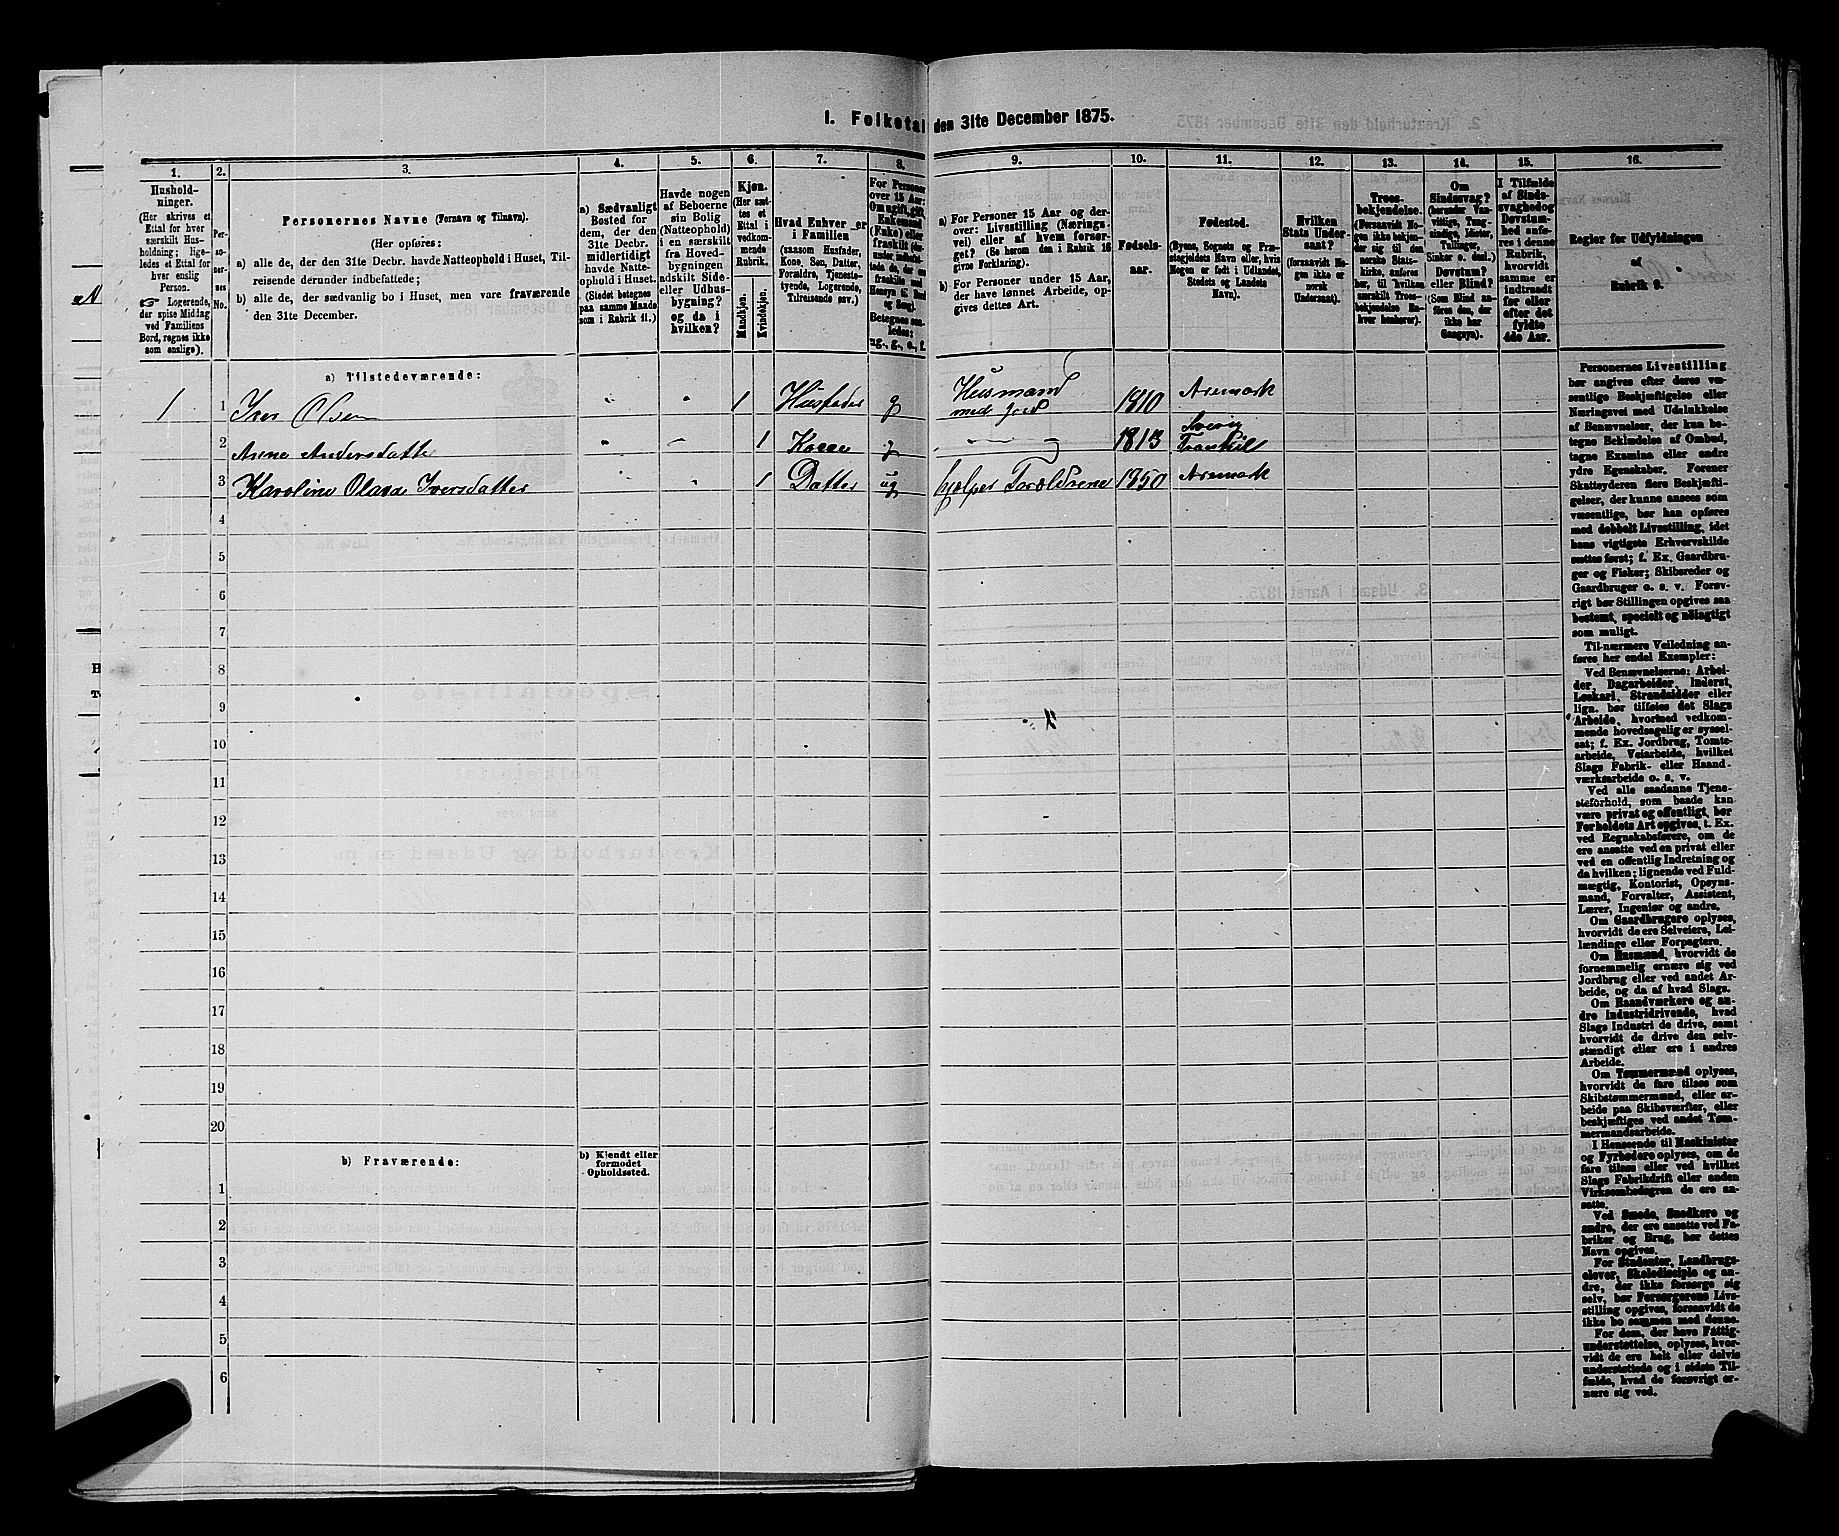 1. Folketal den 31te December 1875.
1.
Hushold-
ninger.
(Her skrives et
Ettal for hver
særskilt Hus-
holdning; lige-
ledes et Ettal for
hver enslig
Person.
☞ Logerende,
der spise Middag
ved Familiens
Bord, regnes ikke
som enslige).
2.
Per-
so-
ner-
nes
No.
3.
Personernes Navne (Fornavn og Tilnavn).
(Her opføres:
a) alle de, der den 31te Decbr. havde Natteophold i Huset, Til-
reisende derunder indbefattede;
b) alle de, der sædvanlig bo i Huset, men vare fraværende
den 31te December.
4.
a) Sædvanligt
Bosted for
dem, der den
31te Decbr.
midlertidigt
havde Natte-
ophold i Huset.
(Stedet betegnes
paa samme Maade
som i Rubrik 11.)
5.
Havde nogen
af Beboerne
sin Bolig
(Natteophold)
i en særskilt
fra Hoved-
bygningen
adskilt Side-
eller Udhus-
bygning?
og da i
hvilken?
6.
Kjøn.
(Her sæt-
tes et
Ettal i
vedkom-
mende
Rubrik.
Mandkjøn.
Kvindekjøn.
7.
Hvad Enhver er
i Familien
(saasom Husfader,
Kone, Søn, Datter,
Forældre, Tjeneste-
tyende, Logerende,
Tilreisende osv.)
8.
For Personer
over 15 Aar:
Om ugift, gift,
Enkemand
(Enke) eller
fraskilt
Betegnes saa-
ledes:
ug., g., e., f.
9.
a) For Personer 15 Aar og der-
over: Livsstilling (Nærings-
vei) eller af hvem forsør-
get? (Se herom den i Rubrik 16
givne Forklaring).
b) For Personer under 15 Aar,
der have lønnet Arbeide, op-
gives dettes Art.
10.
Fødsels-
aar.
11.
Fødested.
(Byens, Sognets og Præ-
stegjeldets Navn eller, hvis
Nogen er født i Udlandet,
Stedets og Landets
Navn).
12.
Hvilken
Stats Under-
saat?
(forsaavidt No-
gen ikke er
norsk
Undersaat).
13.
Troes-
bekjendelse.
(Forsaavidt No-
gen ikke bekjen-
der sig til den
norske Stats-
kirke, anføres
her, til hvilken
særskilt Troes-
bekjendelse En-
hver henhører).
14.
Om
Sindssvag?
(herunder Van-
vittige, Tung-
sindige, Idioter,
Tullinger,
Sinker o. desl.)
Døvstum?
eller Blind?
(Som Blind an-
føres den, der
ikke har
Gangsyn).
15.
I Tilfælde
af Sinds-
svaghed og
Døvstum-
hed anfø-
res i denne
Rubrik,
hvorvidt
samme er
indtraadt
før eller
efter det
fyldte
4de Aar.
16.
Regler for Udfyldningen
af
Rubrik 9.
a) Tilstedeværende:
1 1 Iver Olsen 1 Husfader g Husmand med Jord 1810 Aremark
2 Anne Andersdatter 1 Kone g 1813 Sverig Trankil
3 Karoline Olava Iversdatter 1 Datter ug hjelper Forældrene 1850 Aremark
4
5
6
7
8
9
10
11
12
13
14
15
16
17
18
19
20
b) Fraværende:
b) Kjendt eller
formodet
Opholdssted.
1
2
3
4
5
6
Personernes Livsstilling
bør angives efter deres væ-
sentlige Beskjæftigelse eller
Næringsvei med Udelukkelse
af Benævnelser, der kun be-
tegne Beklædelse af Ombud,
tagne Examina eller andre
ydre Egenskaber. Forener
Skattyderen flere Beskjæfti-
gelser, der kunne ansees som
væsentlige, bør han opføres
med dobbelt Livsstilling, idet
hans vigtigste Erhvervskilde
sættes først; f. Ex. Gaardbru-
ger og Fisker; Skibsreder og
Gaardbruger o. s. v. Forøv-
rigt bør Stillingen opgives saa
bestemt, specielt og nøiagtigt
som muligt.
Til nærmere Veiledning an-
føres her endel Exempler:
Ved Benævnelserne: Arbei-
der, Dagarbeider, Inderst,
Løskarl, Strandsidder eller
lign. bør tilføies det Slags
Arbeide, hvormed vedkom-
mende hovedsagelig er syssel-
sat; f. Ex. Jordbrug, Tomte-
arbeide, Veiarbeide, hvilket
Slags Fabrik- eller Haand-
værksarbeide o. s. v.
Ved alle saadanne Tjene-
steforhold, som baade kan
være privat og offentligt, bør
Forholdets Art opgives, t. Ex.
ved Regnskabsførere, om de
ere ansatte ved en privat eller
ved en offentlig Indretning og
da hvilken; lignende ved Fuld-
mægtig, Kontorist, Opsyns-
mand, Forvalter, Assistent,
Lærer, Ingeniør og andre.
Om Gaardbrugere oplyses,
hvorvidt de ere Selveiere, Lei-
lændinge eller Forpagtere.
Om Husmænd, hvorvidt de
fornemmelig ernære sig ved
Jordbrug eller ved andet Ar-
beide, og da af hvad Slags.
Om Haandværkere og an-
dre Industridrivende, hvad
Slags Industri de drive, samt
hvorvidt de drive den selv-
stændigt eller ere i andres
Arbeide.
Om Tømmermænd oplyses,
hvorvidt de fare tilsøs som
Skibstømmermænd, eller ar-
beide paa Skibsværfter, eller
beskjæftiges ved andet Tøm-
mermandsarbeide.
I Henseende til Maskinister
og Fyrbødere oplyses, om de
fare tilsøs eller ved hvilket
Slags Fabrikdrift eller anden
Virksomhedsgren de ere an-
satte.
Ved Smede, Snedkere og
andre, der ere ansatte ved Fa-
briker og Brug, bør dettes
Navn opgives.
For Studenter, Landbrugs-
elever, Skoledisciple og an-
dre, der ikke forsørge sig
selv, bør Forsørgerens Livs-
stilling opgives, forsaavidt de
ikke bo sammen med denne.
For dem, der have Fattig-
understøttelse, oplyses, hvor-
vidt de ere helt eller delvis
understøttede og i sidste Til-
fælde, hvad de forøvrigt er-
nære sig ved.